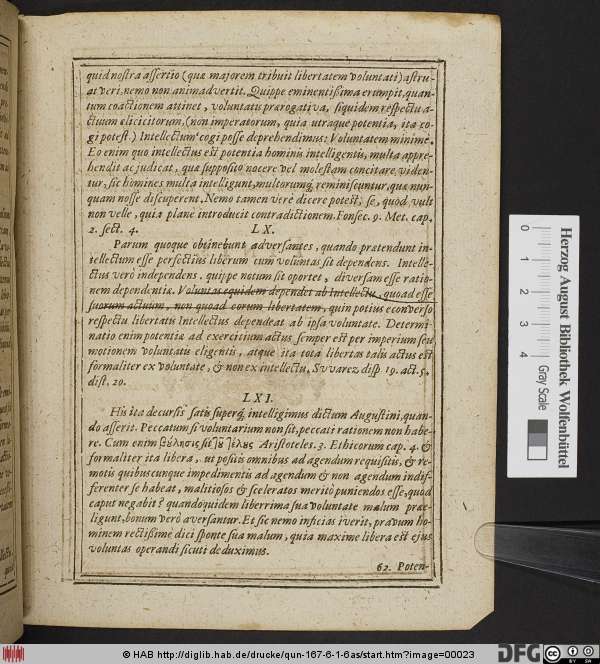 quid nostra assertio (quæ majorem tribuit libertatem voluntati) astru-
at veri, nemo non animadvertit. Quippe eminentißima erumpit, quan-
tum coactionem attinet, voluntatis prærogativa, siquidem respectu a-
ctuum elicicitorum, (non imperatorum, quia utraque potentia, ita co-
gi potest.) Intellectum cogi posse deprehendimus: Voluntatem minimè.
Eo enim quo intellectus est potentia hominis intelligentis, multa appre-
hendit ac judicat, quæ supposito nocere vel molestam concitare, viden-
tur, sic homines multa intelligunt, multorumq́; reminiscuntur, quæ nun-
quam nosse discuperent. Nemo tamen verè dicere potest, se, quod vult
non velle, quia planè introducit contradictionem. Fonsec. 9. Met. cap.
2. sect. 4.
LX.
Parum quoque obtinebunt adversantes, quando prætendunt in-
tellectum esse perfectius liberum cum voluntas sit dependens. Intelle-
ctus verò independens. quippe notum sit oportet, diversam esse ratio-
nem dependentiæ. Voluntas equidem dependet ab Intellectu, quoad esse
suorum actuum, non quoad eorum libertatem, quin potius è converso
respectu libertatis Intellectus dependeat ab ipsa voluntate. Determi-
natio enim potentiæ ad exercitium actus semper est per imperium seu
motionem voluntatis eligentis, atque ita tota libertas talis actus est
formaliter ex voluntate, & non ex intellectu. Svvarez. disp. 19. act. 5.
dist. 20.
LXI.
His ita decursis satis superq́; intelligimus dictum Augustini, quan-
do asserit. Peccatum si voluntarium non sit, peccati rationem non habe-
re. Cum enim βούλησις sit τοῦ τέλους Aristoteles. 3. Ethicorum cap. 4. &
formaliter ita libera, ut positis omnibus ad agendum requisitis, & re-
motis quibuscunque impedimentis ad agendum & non agendum indif-
ferenter se habeat, malitiosos & sceleratos meritò puniendos esse, quod
caput negabit? quandoquidem liberrima sua voluntate malum præe-
ligunt, bonum verò aversantur. Et sic nemo inficias iverit, pravum ho-
minem rectißime dici sponte sua malum, quia maxime libera est ejus
voluntas operandi sicuti deduximus.
62. Poten-
0
1
2
3
4
Herzog August Bibliothek Wolfenbüttel
Gray Scale
© HAB http://diglib.hab.de/drucke/qun-167-6-1-6as/start.htm?image=00023
DFG
CC BY SA